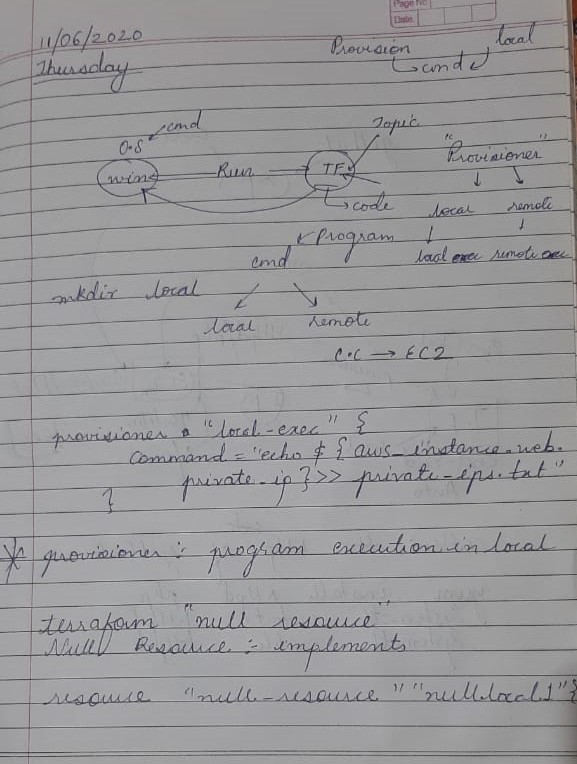 Page No
Date
11/06/2020
Thursday
Provision
local
cmd
O.S
cmd
Topic
"Provisioner"
wind
Run
TF
code
local
remote
Program
local exec
remote exec
cmd
mkdir local
local
remote
C.C → EC2
provisioner "local-exec" {
command = "echo ${aws_instance.web.
private_ip}>> private_ips.txt"
}
* provisioner : program execution in local
terraform "null resource"
Null Resource :- implements
resource "null-resource" "nulllocal1"{